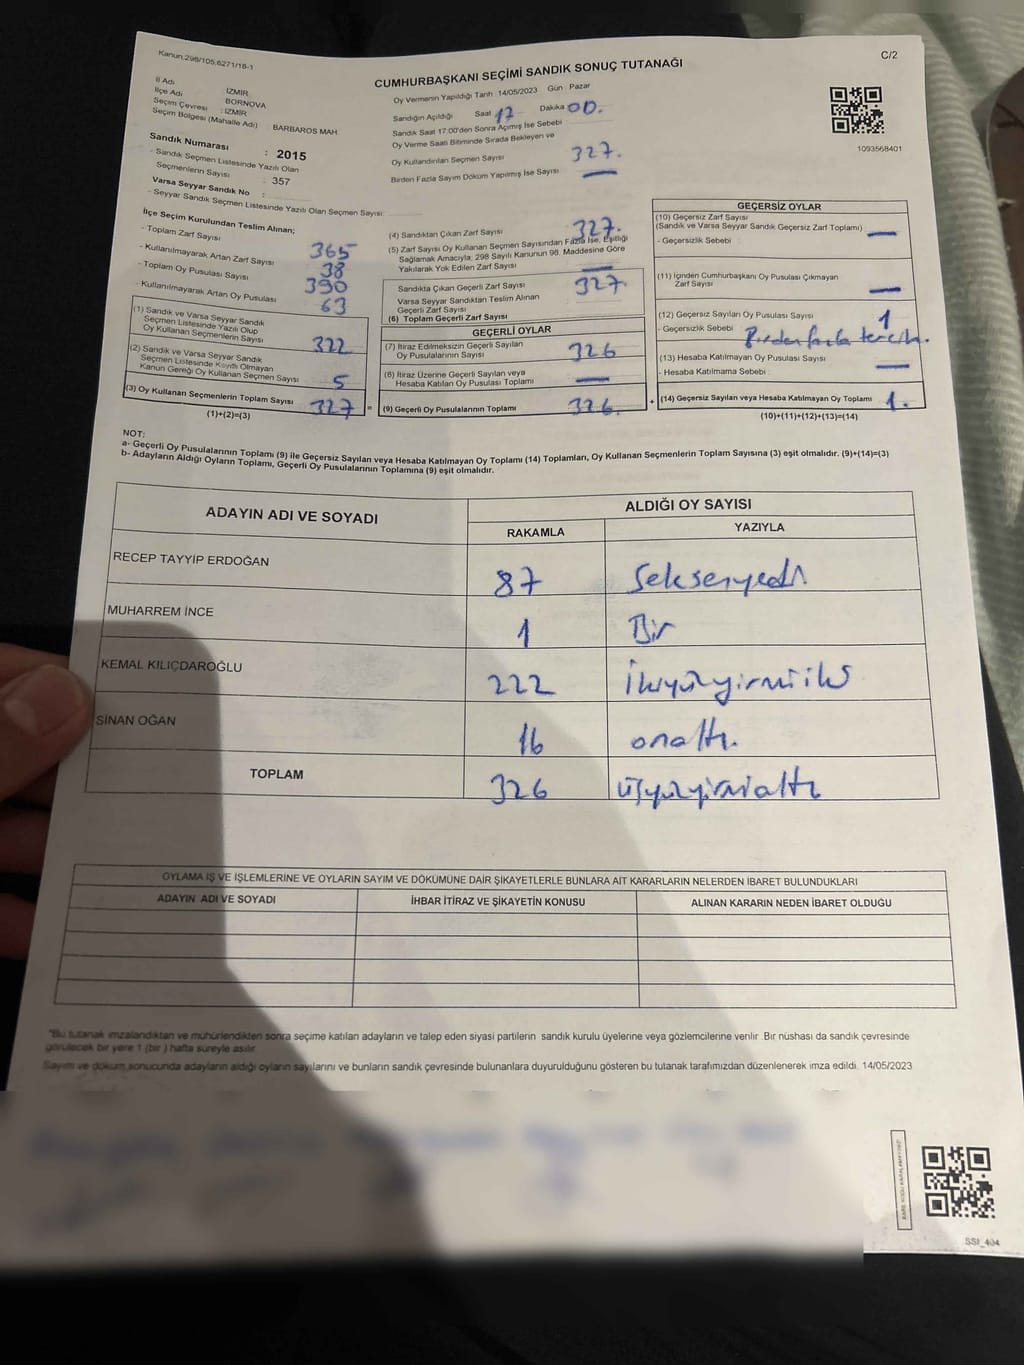 Kanun:298/105,6271/18-1
C/2
CUMHURBAŞKANI SEÇİMİ SANDIK SONUÇ TUTANAĞI
İl Adı : İZMİR
İlçe Adı : BORNOVA
Seçim Çevresi : İZMİR
Seçim Bölgesi (Mahalle Adı) BARBAROS MAH.
Sandık Numarası : 2015
- Sandık Seçmen Listesinde Yazılı Olan
Seçmenlerin Sayısı : 357
Varsa Seyyar Sandık No :
- Seyyar Sandık Seçmen Listesinde Yazılı Olan Seçmen Sayısı:
Oy Vermenin Yapıldığı Tarih :14/05/2023 Gün : Pazar
Sandığın Açıldığı Saat 17 Dakika 00.
Sandık Saat 17:00'den Sonra Açılmış İse Sebebi
Oy Verme Saati Bitiminde Sırada Bekleyen ve
Oy Kullandırılan Seçmen Sayısı 327.
Birden Fazla Sayım Döküm Yapılmış İse Sayısı —
1093568401
İlçe Seçim Kurulundan Teslim Alınan;
- Toplam Zarf Sayısı 365
- Kullanılmayarak Artan Zarf Sayısı 38
- Toplam Oy Pusulası Sayısı 390
- Kullanılmayarak Artan Oy Pusulası 63
(1) Sandık ve Varsa Seyyar Sandık
Seçmen Listesinde Yazılı Olup
Oy Kullanan Seçmenlerin Sayısı 322
(2) Sandık ve Varsa Seyyar Sandık
Seçmen Listesinde Kayıtlı Olmayan
Kanun Gereği Oy Kullanan Seçmen Sayısı 5
(3) Oy Kullanan Seçmenlerin Toplam Sayısı 327 =
(1)+(2)=(3)
(4) Sandıktan Çıkan Zarf Sayısı 327.
(5) Zarf Sayısı Oy Kullanan Seçmen Sayısından Fazla İse, Eşitliği
Sağlamak Amacıyla, 298 Sayılı Kanunun 98. Maddesine Göre
Yakılarak Yok Edilen Zarf Sayısı —
Sandıkta Çıkan Geçerli Zarf Sayısı 327.
Varsa Seyyar Sandıktan Teslim Alınan
Geçerli Zarf Sayısı
(6) Toplam Geçerli Zarf Sayısı
GEÇERLİ OYLAR
(7) İtiraz Edilmeksizin Geçerli Sayılan
Oy Pusulalarının Sayısı 326
(8) İtiraz Üzerine Geçerli Sayılan veya
Hesaba Katılan Oy Pusulası Toplamı —
(9) Geçerli Oy Pusulalarının Toplamı 326. +
GEÇERSİZ OYLAR
(10) Geçersiz Zarf Sayısı
(Sandık ve Varsa Seyyar Sandık Geçersiz Zarf Toplamı) —
- Geçersizlik Sebebi
(11) İçinden Cumhurbaşkanı Oy Pusulası Çıkmayan
Zarf Sayısı —
(12) Geçersiz Sayılan Oy Pusulası Sayısı 1
- Geçersizlik Sebebi Birden fazla tercih.
(13) Hesaba Katılmayan Oy Pusulası Sayısı —
- Hesaba Katılmama Sebebi
(14) Geçersiz Sayılan veya Hesaba Katılmayan Oy Toplamı 1.
(10)+(11)+(12)+(13)=(14)
NOT:
a- Geçerli Oy Pusulalarının Toplamı (9) ile Geçersiz Sayılan veya Hesaba Katılmayan Oy Toplamı (14) Toplamları, Oy Kullanan Seçmenlerin Toplam Sayısına (3) eşit olmalıdır. (9)+(14)=(3)
b- Adayların Aldığı Oyların Toplamı, Geçerli Oy Pusulalarının Toplamına (9) eşit olmalıdır.
ADAYIN ADI VE SOYADI
ALDIĞI OY SAYISI
RAKAMLA YAZIYLA
RECEP TAYYİP ERDOĞAN 87 Seksenyedi
MUHARREM İNCE 1 Bir
KEMAL KILIÇDAROĞLU 222 İkiyüzyirmiiki
SİNAN OĞAN 16 onaltı.
TOPLAM 326 üçyüzyirmialtı
OYLAMA İŞ VE İŞLEMLERİNE VE OYLARIN SAYIM VE DÖKÜMÜNE DAİR ŞİKAYETLERLE BUNLARA AİT KARARLARIN NELERDEN İBARET BULUNDUKLARI
ADAYIN ADI VE SOYADI İHBAR İTİRAZ VE ŞİKAYETİN KONUSU ALINAN KARARIN NEDEN İBARET OLDUĞU
*Bu tutanak imzalandıktan ve mühürlendikten sonra seçime katılan adayların ve talep eden siyasi partilerin sandık kurulu üyelerine veya gözlemcilerine verilir. Bir nüshası da sandık çevresinde
görülecek bir yere 1 (bir) hafta süreyle asılır.
Sayım ve döküm sonucunda adayların aldığı oyların sayılarını ve bunların sandık çevresinde bulunanlara duyurulduğunu gösteren bu tutanak tarafımızdan düzenlenerek imza edildi. 14/05/2023
SSI_404